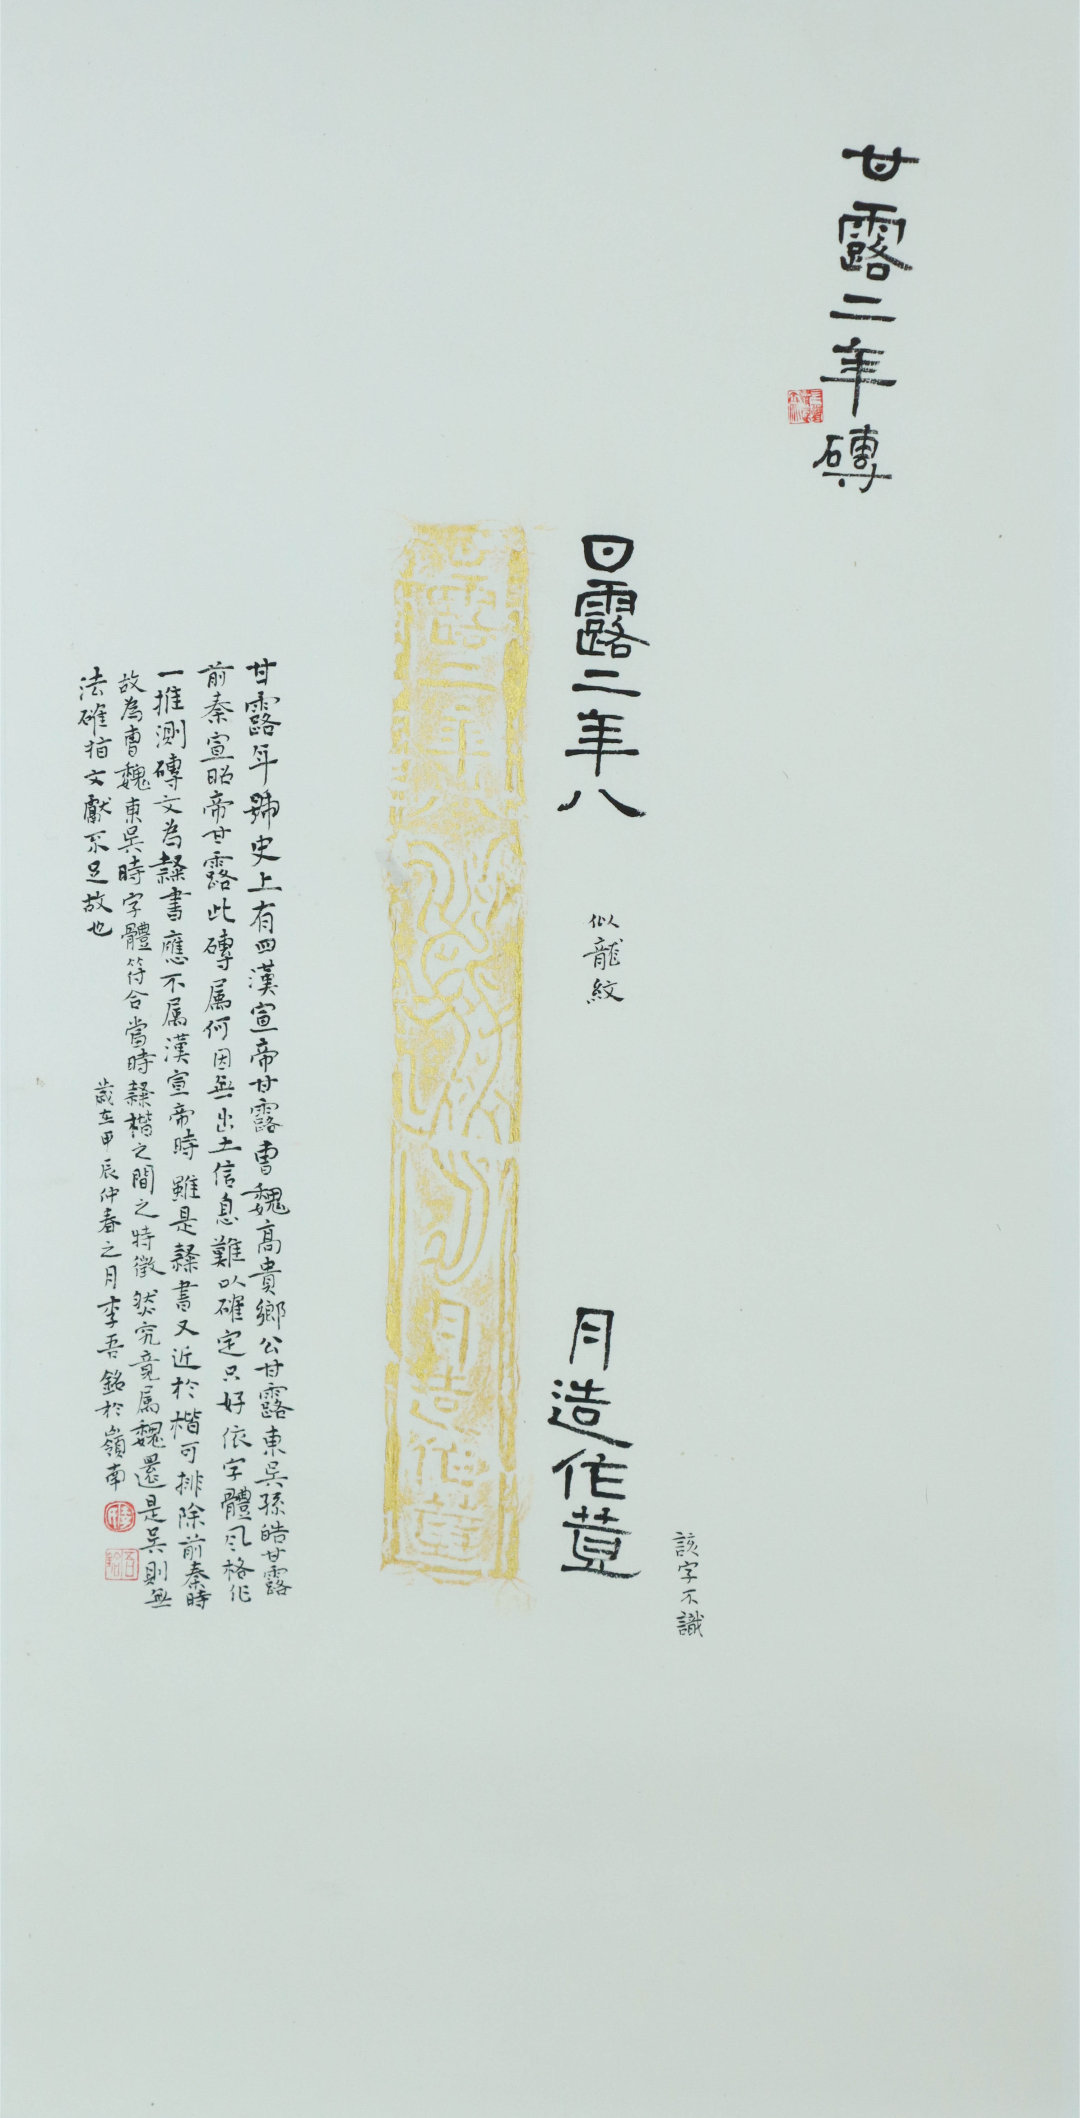 甘露二年磚
甘露二年八
似龍紋
月造作
該字不識
甘露年號史上有四漢宣帝甘露曹魏高貴鄉公甘露東吳孫皓甘露
前秦宣昭帝甘露此磚屬何因無出土信息難以確定只好依字體風格作
一推測磚文為隸書應不属漢宣帝時雖是隸書又近於楷可排除前秦時
故為曹魏東吳時字體符合當時隸楷之間之特徵然究竟属魏還是吳則無
法確指文獻不足故也
歲在甲辰仲春之月李吾銘於嶺南